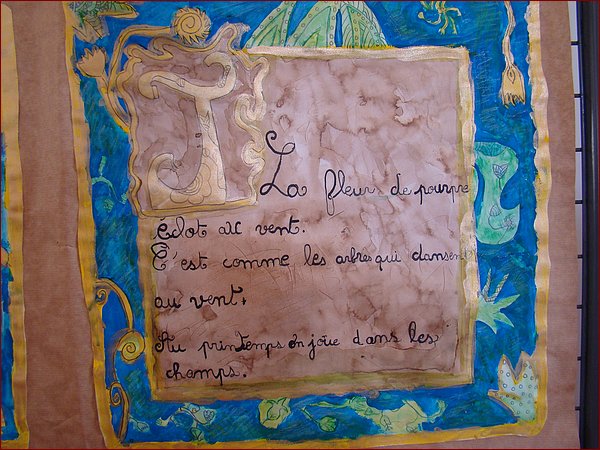 J
La fleur de pourpre
éclot au vent.
C'est comme les arbres qui dansent
au vent.
Au printemps on joüe dans les
champs.